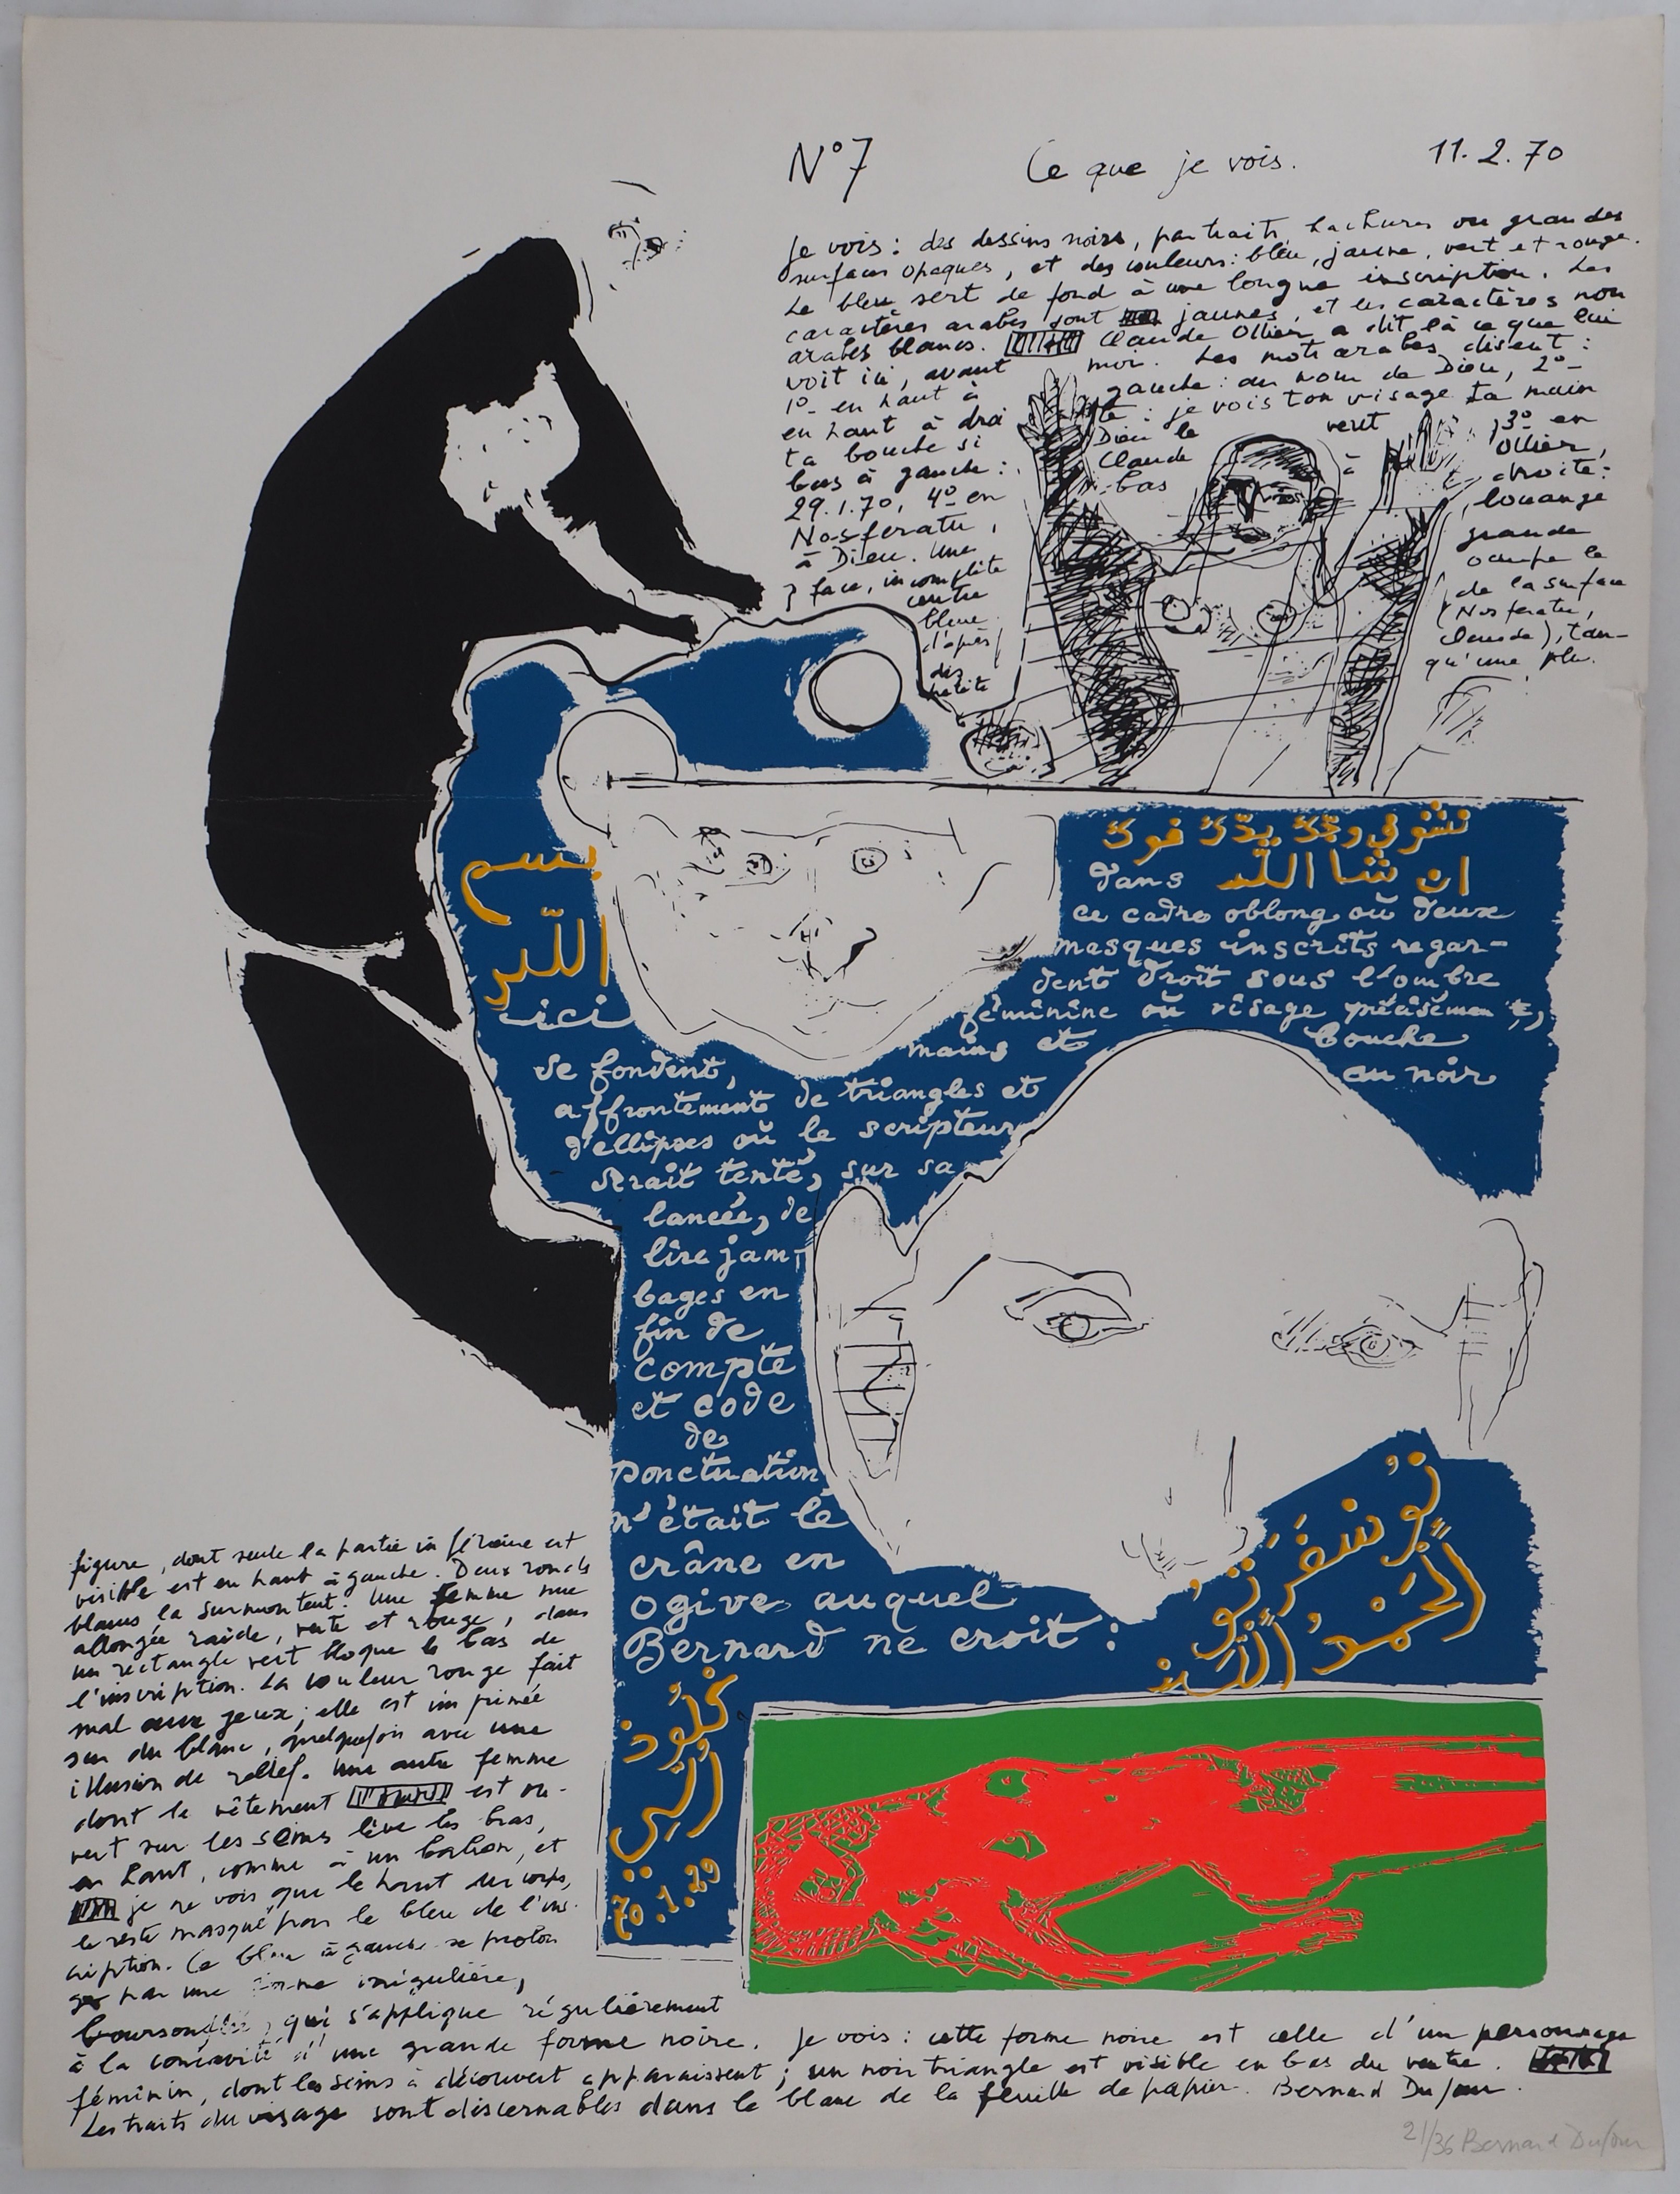 N°7 Ce que je vois. 11.2.70
Je vois : des dessins noirs, portraits, hachures ou grandes
surfaces opaques, et des couleurs : bleu, jaune, vert et rouge.
Le bleu sert de fond à une longue inscription. Les
caractères arabes sont jaunes, et les caractères non
arabes blancs. Claude Ollier a dit là ce que lui
voit ici, avant moi. Les mots arabes disent :
1°- en haut à gauche : au nom de Dieu, 2°-
en haut à droite : je vois ton visage ta main
ta bouche si Dieu le veut, 3° en
bas à gauche : Claude Ollier,
29.1.70, 4° en bas à droite :
Nosferatu, louange
à Dieu. Une grande
face, incomplète occupe le
centre de la surface
bleue (Nosferatu,
d'après Claude), tan-
dis qu'une plus
petite
بسم
اللّه
ici
تشوفي وجّك يدّك فوك
ان شا اللّه dans
ce cadre oblong où deux
masques inscrits regar-
dent droit sous l'ombre
féminine où visage précisément,
mains et bouche
se fondent, au noir
affrontements de triangles et
d'ellipses où le scripteur
serait tenté, sur sa
lancée, de
lire jam-
bages en
fin de
compte
et code
de
ponctuation
n'était le
crâne en
ogive auquel
Bernard ne croit :
نُوسفَرَتُو
الحَمْدُ اللّه
29.1.70
figure, dont seule la partie inférieure est
visible est en haut à gauche. Deux ronds
blancs la surmontent. Une femme nue
allongée raide, verte et rouge, dans
un rectangle vert bloque le bas de
l'inscription. La couleur rouge fait
mal aux yeux ; elle est imprimée
sur du blanc, quelquefois avec une
illusion de relief. Une autre femme
dont le vêtement est ou-
vert sur les seins lève les bras,
en haut, comme à un balcon, et
je ne vois que le haut du corps,
le reste masqué par le bleu de l'ins-
cription. Ce bleu à gauche se prolon
ge par une forme irrégulière,
boursouflée, qui s'applique régulièrement
à la concavité d'une grande forme noire. Je vois : cette forme noire est celle d'un personnage
féminin, dont les seins à découvert apparaissent ; un noir triangle est visible en bas du ventre.
Les traits du visage sont discernables dans le blanc de la feuille de papier. Bernard Dufour.
21/36 Bernard Dufour